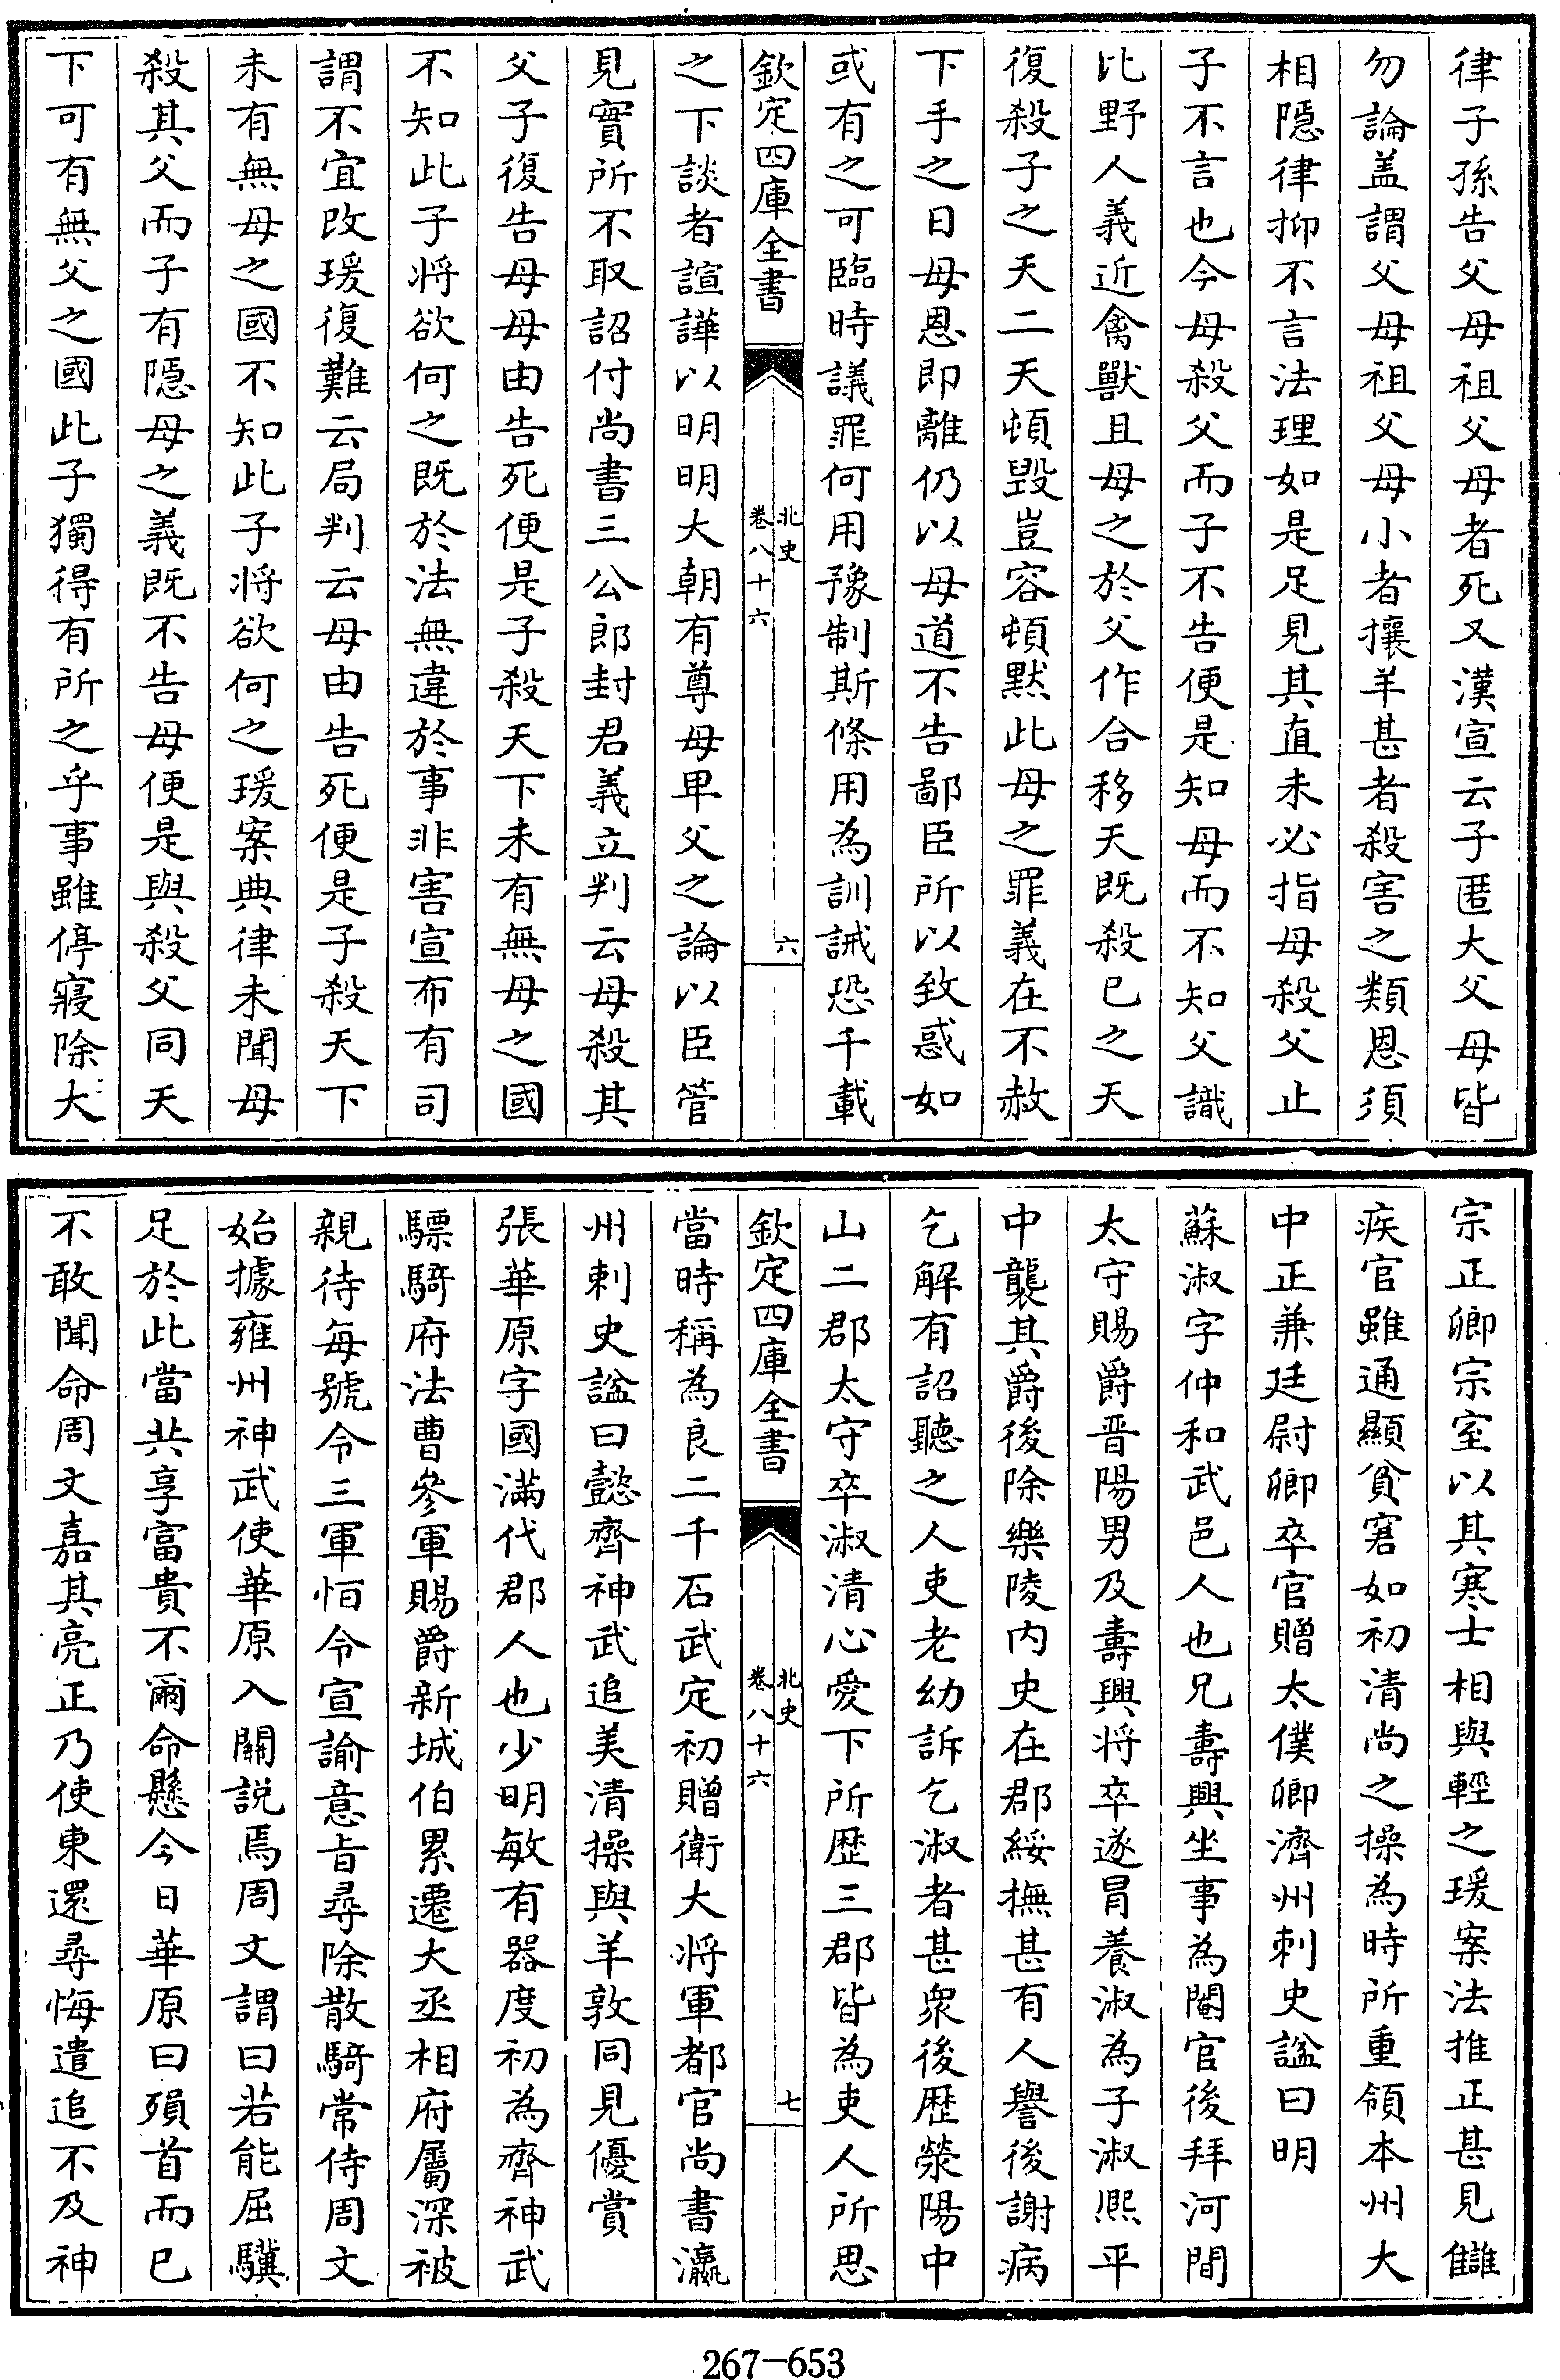 律子孫告父母祖父母者死又漢宣云子匿大父母皆
勿論盖謂父母祖父母小者攘羊甚者殺害之類恩須
相隱律抑不言法理如是足見其直未必指母殺父止
子不言也今母殺父而子不告便是知母而不知父識
比野人義近禽獸且母之於父作合移天既殺已之天
復殺子之天二天頓毀豈容頓黙此母之罪義在不赦
下手之日母恩即離仍以母道不告鄙臣所以致惑如
或有之可臨時議罪何用豫制斯條用為訓誡恐千載
欽定四庫全書
北史
卷八十六
六
之下談者諠譁以明明大朝有尊母卑父之論以臣管
見實所不取詔付尚書三公郎封君義立判云母殺其
父子復告母母由告死便是子殺天下未有無母之國
不知此子将欲何之既於法無違於事非害宣布有司
謂不宜改瑗復難云局判云母由告死便是子殺天下
未有無母之國不知此子将欲何之瑗案典律未聞母
殺其父而子有隱母之義既不告母便是與殺父同天
下可有無父之國此子獨得有所之乎事雖停寢除大
宗正卿宗室以其寒士相與輕之瑗案法推正甚見讎
疾官雖通顯貧窘如初清尚之操為時所重領本州大
中正兼廷尉卿卒官贈太僕卿濟州刺史諡曰明
蘇淑字仲和武邑人也兄壽興坐事為閹官後拜河間
太守賜爵晋陽男及壽興将卒遂冒養淑為子淑熙平
中襲其爵後除樂陵内史在郡綏撫甚有人譽後謝病
乞解有詔聽之人吏老幼訴乞淑者甚衆後歴滎陽中
山二郡太守卒淑清心愛下所歴三郡皆為吏人所思
欽定四庫全書
北史
卷八十六
七
當時稱為良二千石武定初贈衛大将軍都官尚書瀛
州刺史諡曰懿齊神武追美清操與羊敦同見優賞
張華原字國滿代郡人也少明敏有器度初為齊神武
驃騎府法曹參軍賜爵新城伯累遷大丞相府屬深被
親待每號令三軍恒令宣諭意旨尋除散騎常侍周文
始據雍州神武使華原入關説焉周文謂曰若能屈驥
足於此當共享富貴不爾命懸今日華原曰殞首而已
不敢聞命周文嘉其亮正乃使東還尋悔遣追不及神
267-653